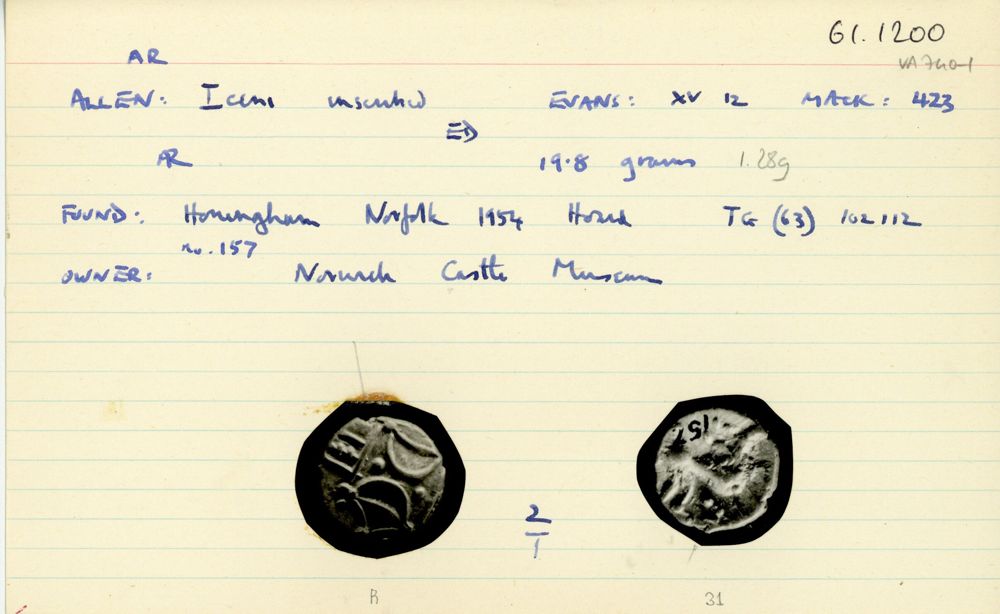 61.1200
AR
VA 740-1
ALLEN: Iceni inscribed EVANS: XV 12 MACK: 423
AR 19.8 grams 1.28g
FOUND: Honingham Norfolk 1954 Hoard TG (63) 102112
no. 157
OWNER: Norwich Castle Museum
157
2
1
B 31